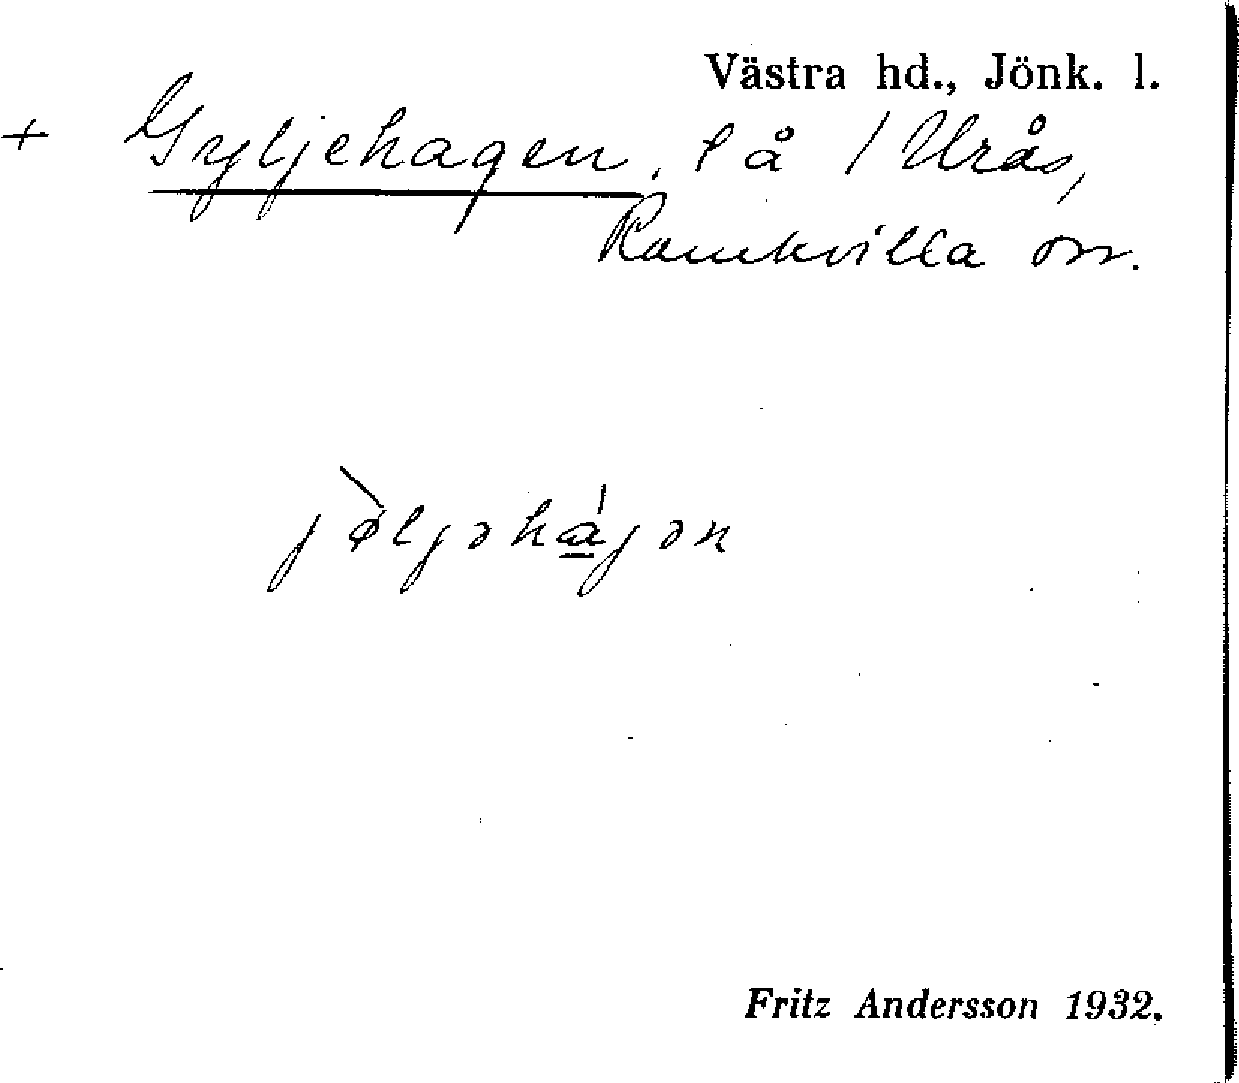 Västra hd., Jönk. l.
+ Gyljehagen. l å / Urås,
Ramkvilla sn.
jø̀ljəhá̱jən
Fritz Andersson 1932.